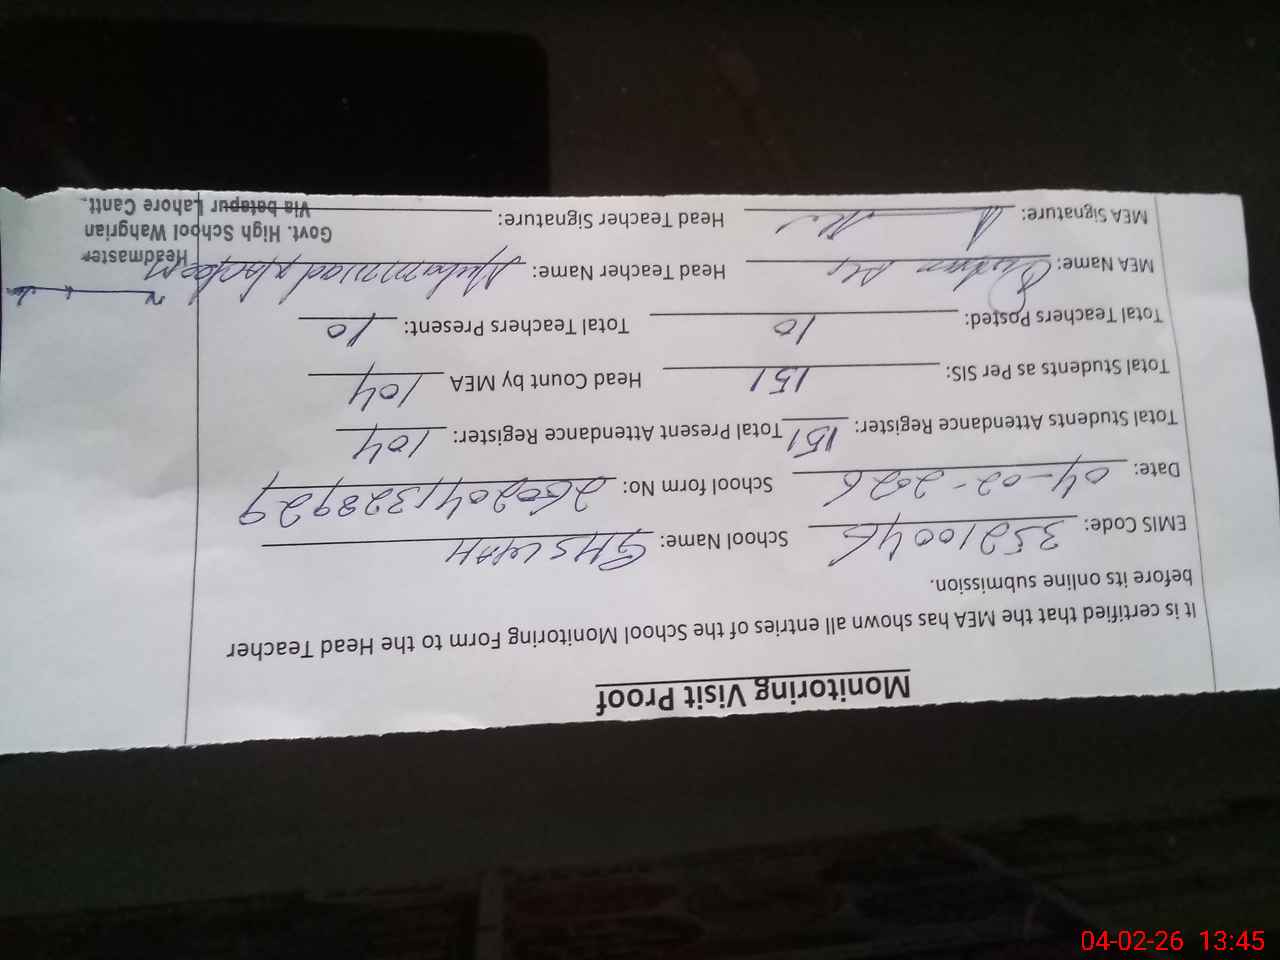 Monitoring Visit Proof
It is certified that the MEA has shown all entries of the School Monitoring Form to the Head Teacher
before its online submission.
EMIS Code: 35210046 School Name: GHS WAH
Date: 04-02-2026 School form No:
Total Students Attendance Register: 151 Total Present Attendance Register: 104
Total Students as Per SIS: 151 Head Count by MEA 104
Total Teachers Posted: 10 Total Teachers Present: 10
MEA Name: Head Teacher Name: Muhammad
MEA Signature: Head Teacher Signature:
Headmaster
Govt. High School Wahgrian
Via batapur Lahore Cantt.
04-02-26 13:45